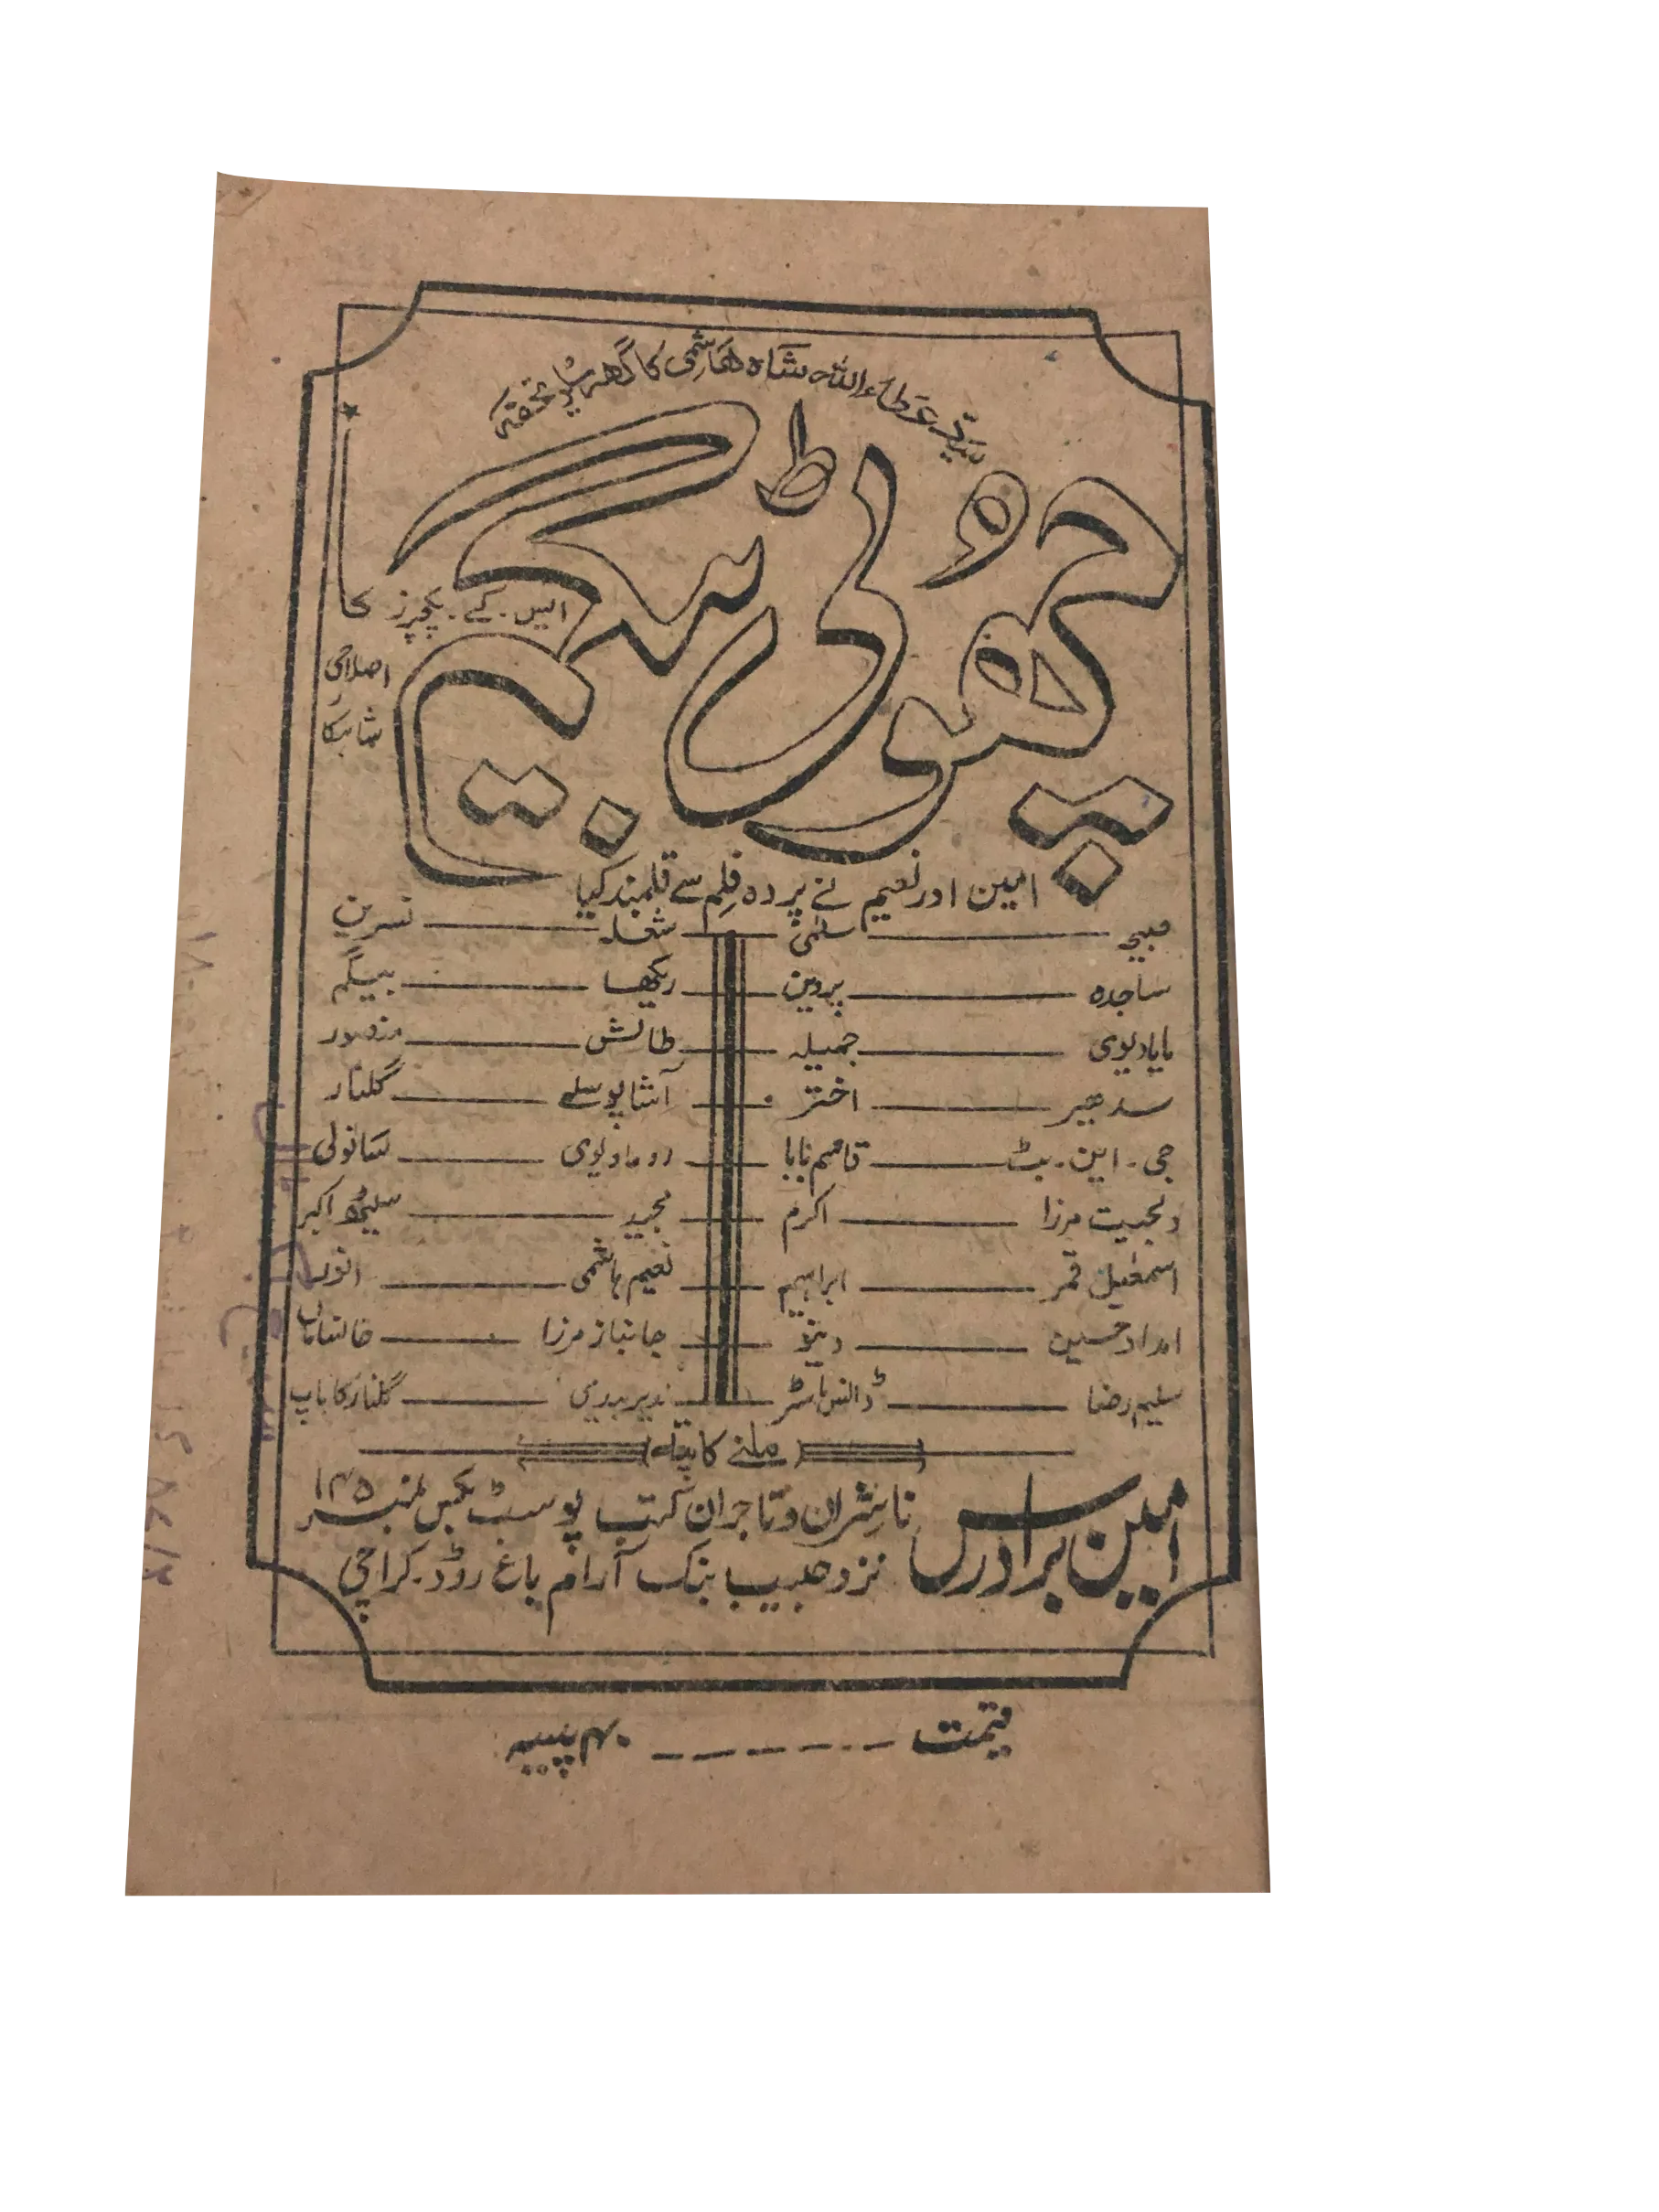 سید عطاءاللہ شاہ ھاشمی کا گھریلو تحفہ
چھوٹی بیگم
ایس . کے . پکچرز کا
اصلاحی
شاہکار
امین اور نعیم نے پردہ فلم سے قلمبند کیا
صبیحہ — سلمیٰ — شعلہ — نسرین
ساجدہ — پروین — ریکھا — بیگم
مایا دیوی — جمیلہ — طالش — منصور
سدھیر — اختر — آشا پوسلے — گلنار
جی . این . بٹ — قاسم بابا — رومادیوی — سانولی
دلجیت مرزا — اکرم — مجید — سیٹھ اکبر
اسمعیل قمر — ابراہیم — نعیم ہاشمی — انور
امداد حسین — دینو — جانباز مرزا — خانساماں
سلیم رضا — ڈانس ماسٹر — نذیر بیدی — گلنار کا باپ
ملنے کا پتہ
امین برادرس ناشران و تاجران کتب پوسٹ بکس نمبر ۱۴۵
نزد حبیب بنک آرام باغ روڈ . کراچی
قیمت — — — ۴۰ پیسہ